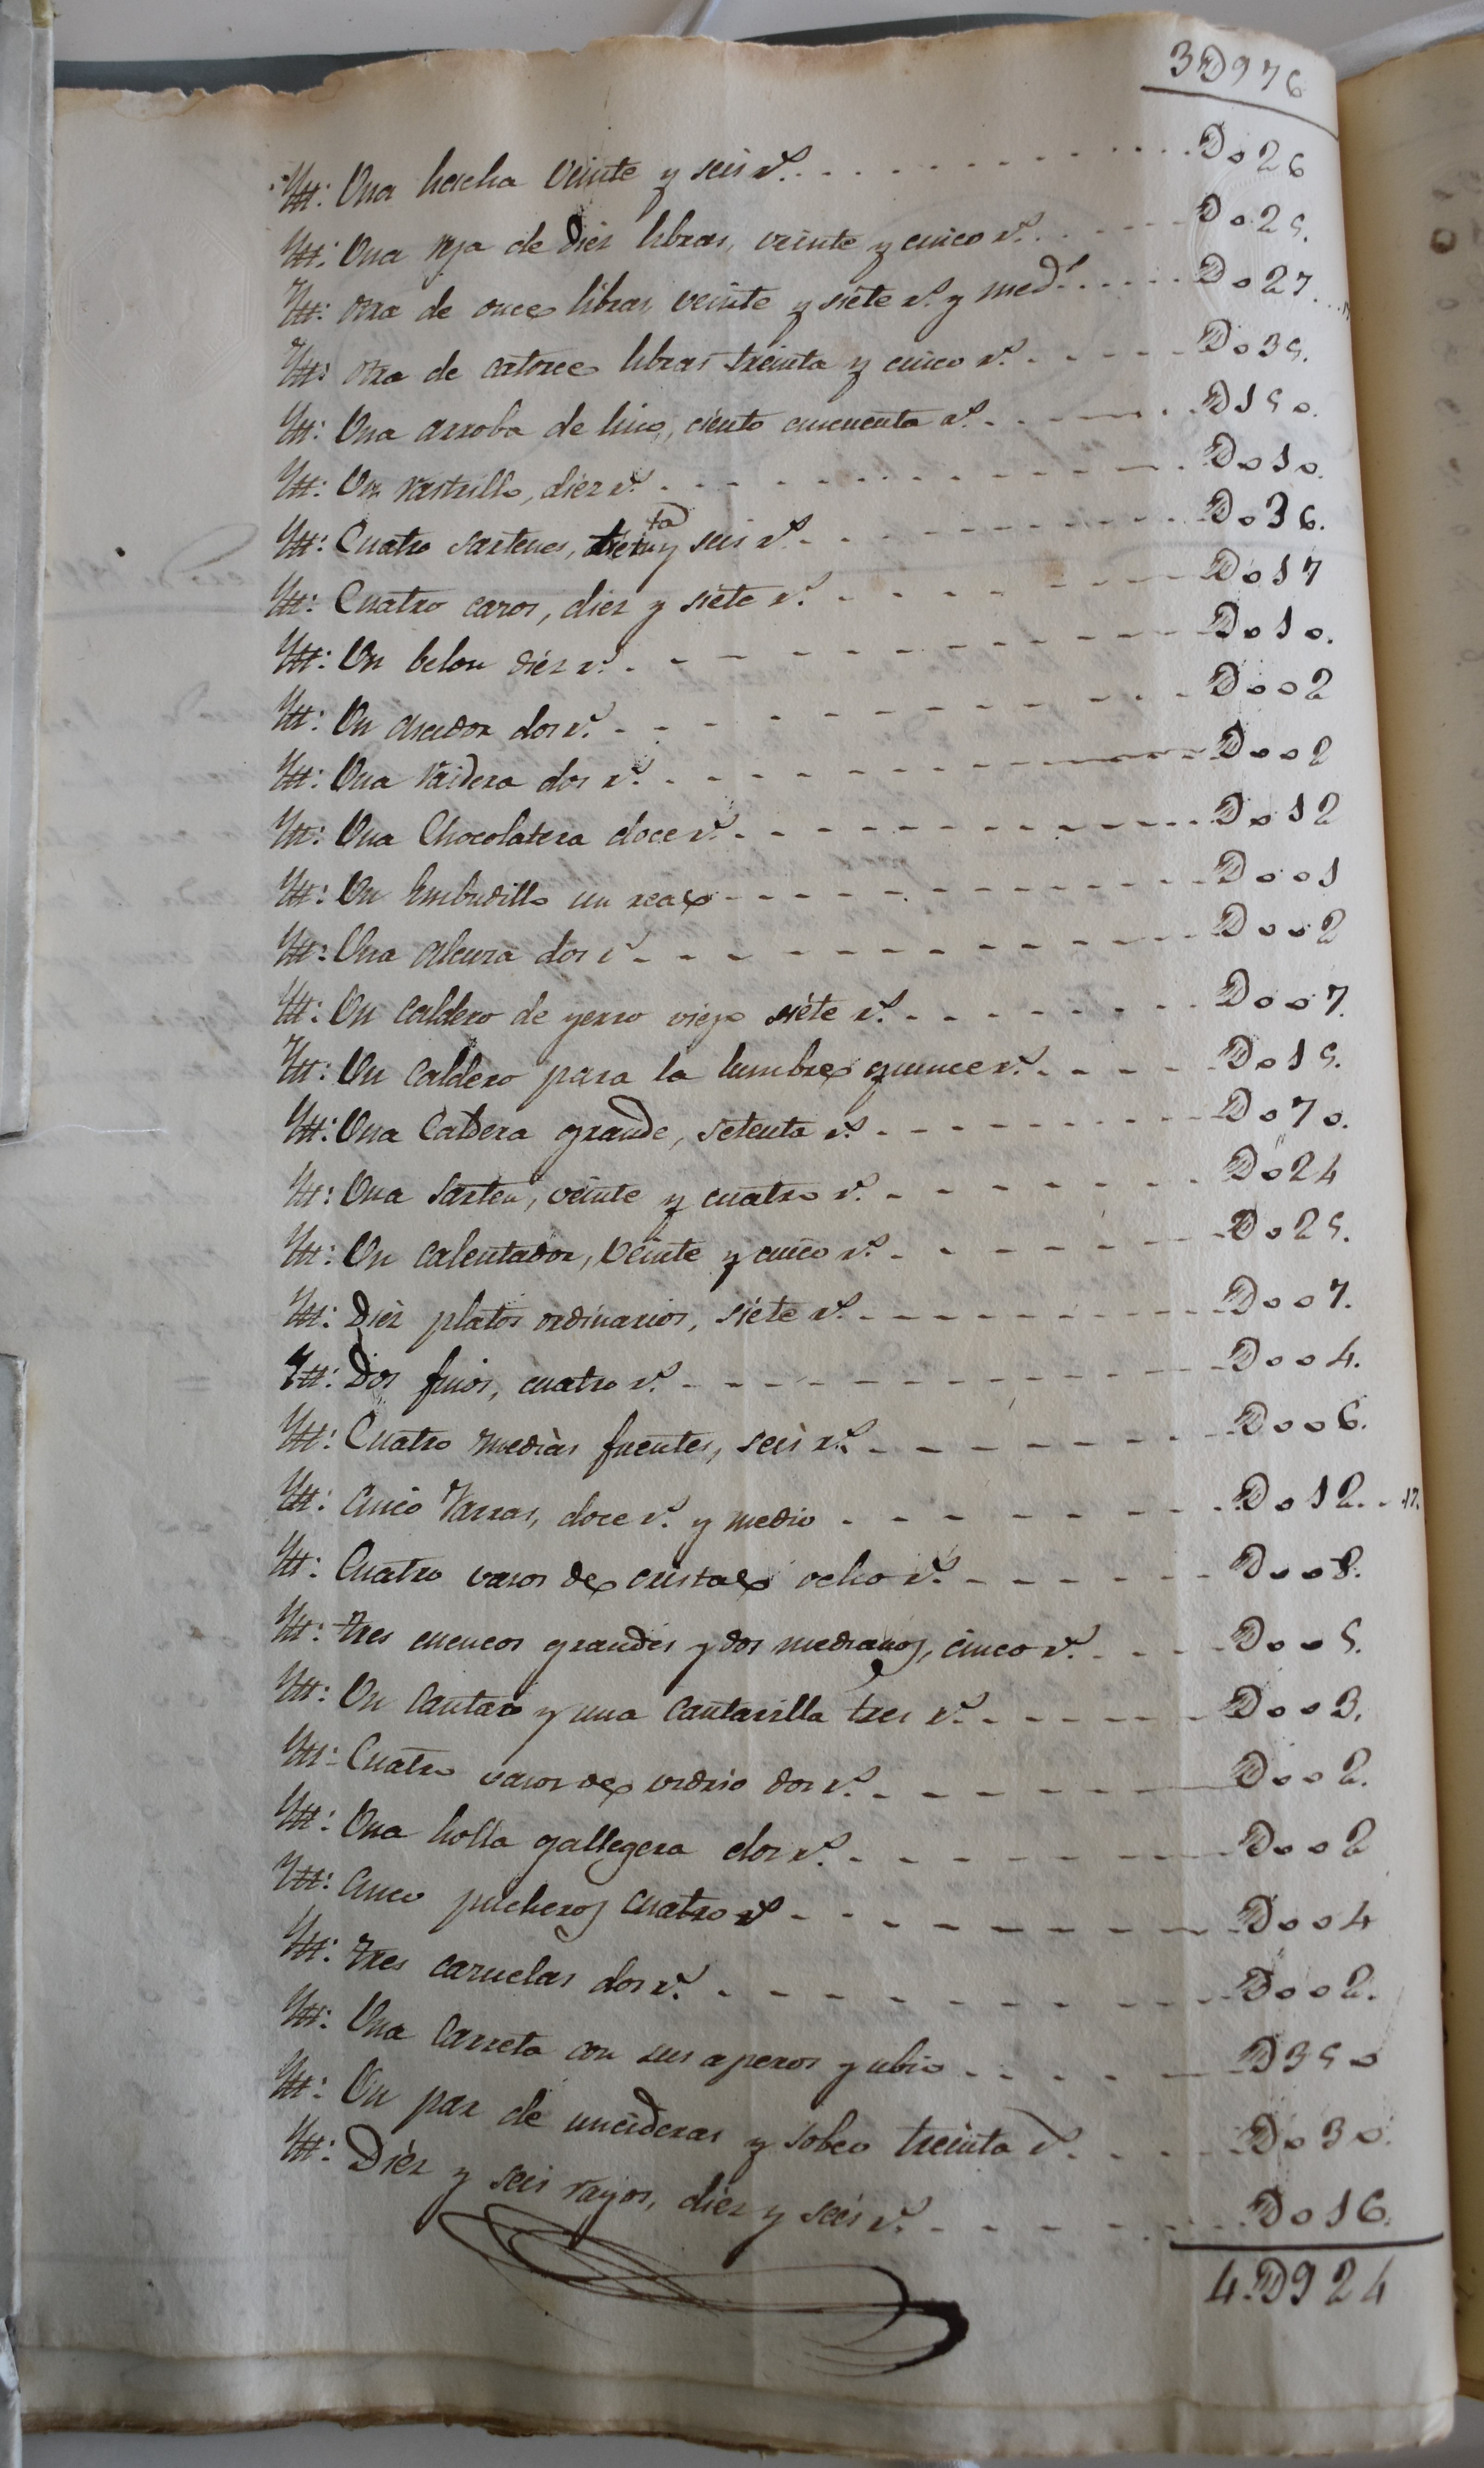 3D976
Ytt: Una hacha veinte y seis rs. D026
Ytt: Una reja de Diez libras, veinte y cinco rs. D025.
Ytt: otra de once libras, veinte y siete rs. y medo. D027..17
Ytt: otra de catorce libras treinta y cinco rs. D035.
Ytt: Una arroba de lino, ciento cincuenta rs. D150.
Ytt: Un rastrillo, diez rs. D010.
Ytt: Cuatro sartenes, treinta y seis rs. D036.
Ytt: Cuatro cazos, diez y siete rs. D017
Ytt: Un belon diez rs. D010.
Ytt: Un asador dos rs. D002
Ytt: Una raidera dos rs. D002
Ytt: Una Chocolatera doce rs. D012
Ytt: Un Embudillo un real D001
Ytt: Una alcuza dos rs D002
Ytt: Un Caldero de yerro viejo siete rs. D007.
Ytt: Un Caldero para la lumbre quince rs. D015.
Ytt: Una Caldera grande, setenta rs. D070.
Ytt: Una sarten, veinte y cuatro rs. D024
Ytt: Un calentador, veinte y cinco rs. D025.
Ytt: Diez platos ordinarios, siete rs. D007.
Ytt: Dos finos, cuatro rs. D004.
Ytt: Cuatro medias fuentes, seis rs. D006.
Ytt: Cinco Jarras, doce rs. y medio D012..17.
Ytt: Cuatro vasos de cristal ocho rs. D008.
Ytt: tres cuencos grandes y dos medianos, cinco rs. D005.
Ytt: Un Cantaro y una Cantarilla tres rs. D003.
Ytt: Cuatro vasos de vidrio dos rs. D002.
Ytt: Una holla gallegera dos rs. D002
Ytt: Cinco pucheros cuatro rs D004
Ytt: tres cazuelas dos rs. D002.
Ytt: Una Carreta con sus aperos y ubio D350
Ytt: Un par de uncideras y sobeo treinta rs. D030.
Ytt: Diez y seis rayos, diez y seis rs. D016.
4.D924